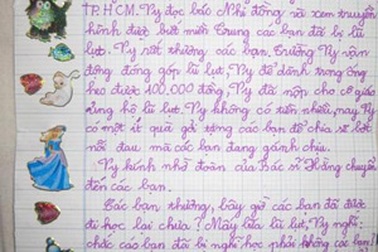 TP.HCM. Vy đọc báo Nhi đồng và xem truyền
hình được biết miền Trung các bạn đã bị lũ
lụt. Vy rất thương các bạn. Trường Vy vận
động đóng góp lũ lụt, Vy để dành trong ống
heo được 100.000 đồng, Vy đã nộp cho cô giáo
ủng hộ lũ lụt. Vy không có tiền nhiều, nay Vy
có một ít quà gởi tặng các bạn để chia sẻ bớt
nỗi đau mà các bạn đang gánh chịu.
Vy kính nhờ đoàn của Bác sĩ Hằng chuyển
đến các bạn.
Các bạn thương, bây giờ các bạn đã được
đi học lại chưa? Mấy bữa lũ lụt, Vy nghĩ:
chắc các bạn đã bị nghỉ học phải không các bạn?